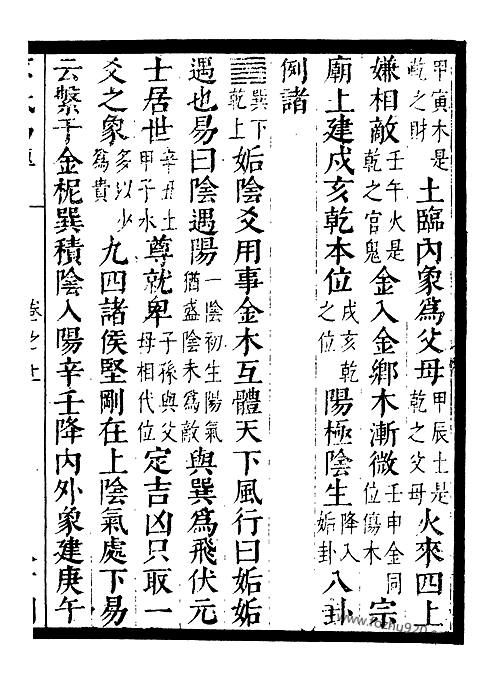 甲寅木是乾之財土臨內象爲父母甲辰土是乾之父母火來四上
嫌相敵壬午火是乾之官鬼金入金鄉木漸微壬申金同位傷木宗
廟上建戍亥乾本位戌亥乾之位陽極陰生降入姤卦八卦
例諸
䷫巽下乾上姤陰爻用事金木互體天下風行曰姤姤
遇也易曰陰遇陽一陰初生陽氣猶盛陰未爲敵與巽爲飛伏元
士居世辛丑土甲子水尊就卑子孫與父母相代位定吉凶只取一
爻之象多以少爲貴九四諸侯堅剛在上陰氣處下易
云繫于金柅巽積陰入陽辛壬降內外象建庚午